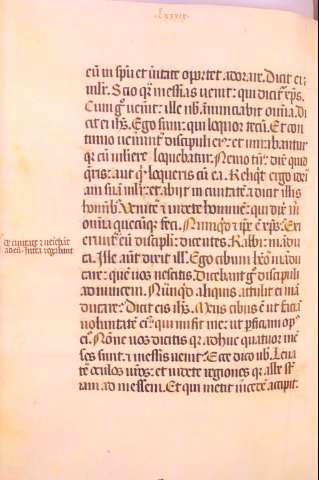 lxxxix
eū in spū et ūitate oportet adorare. Dicit ei
mlr̄. Scio qr̄ messias uenit: qui dicit͛ xp̄s.
Cum g̊ uen̄it: ille nb̄ annunciabit om̄ia. Di
cit ei ihs̄. Ego sum: qui loquor tecū. Et con
tinuo uenerūt discipuli ei᷒: et mirabantur
qr cū muliere loquebatur. Nemo tn̄ dix̄ quid
qris: aut qd̓ loqueris cū ea. Reliqt ergo ydri
am suā mlr̄: et abijt in ciuitatē a dicit illis
hominib᷒. Venite ⁊ uidete hominē: qui dix̄ m̄
om̄ia quecūq feci. Nunqd̓ ip̄e ē xp̄s. Exi
de ciuitate ⁊ ueniebāt
ad eū. Int̓ea rogabant
erunt eū discipli: dicentes. Rabi: mādu
ca. Ille aut̄ dixit ill̓. Ego cibum hēo mādu
care: quē uos nescitis. Dicebant g̊ discipuli
ad inuicem. Nūnqd̓ aliquis attulit ei mā
ducare. Dicit eis ihs̄. Meus cibus ē ut faciā
uoluntatē ei᷒: qui misit me: ut pficiam op᷒
ei᷒. Nōne uos dicitis qr adhuc quatuor mē
ses sunt: ⁊ messis uenit. Ecce dico uob̓. Leua
te oculos ur̄os: et uidete regiones qr albe st̄
iam ad messem. Et qui metit mercedē accipit: